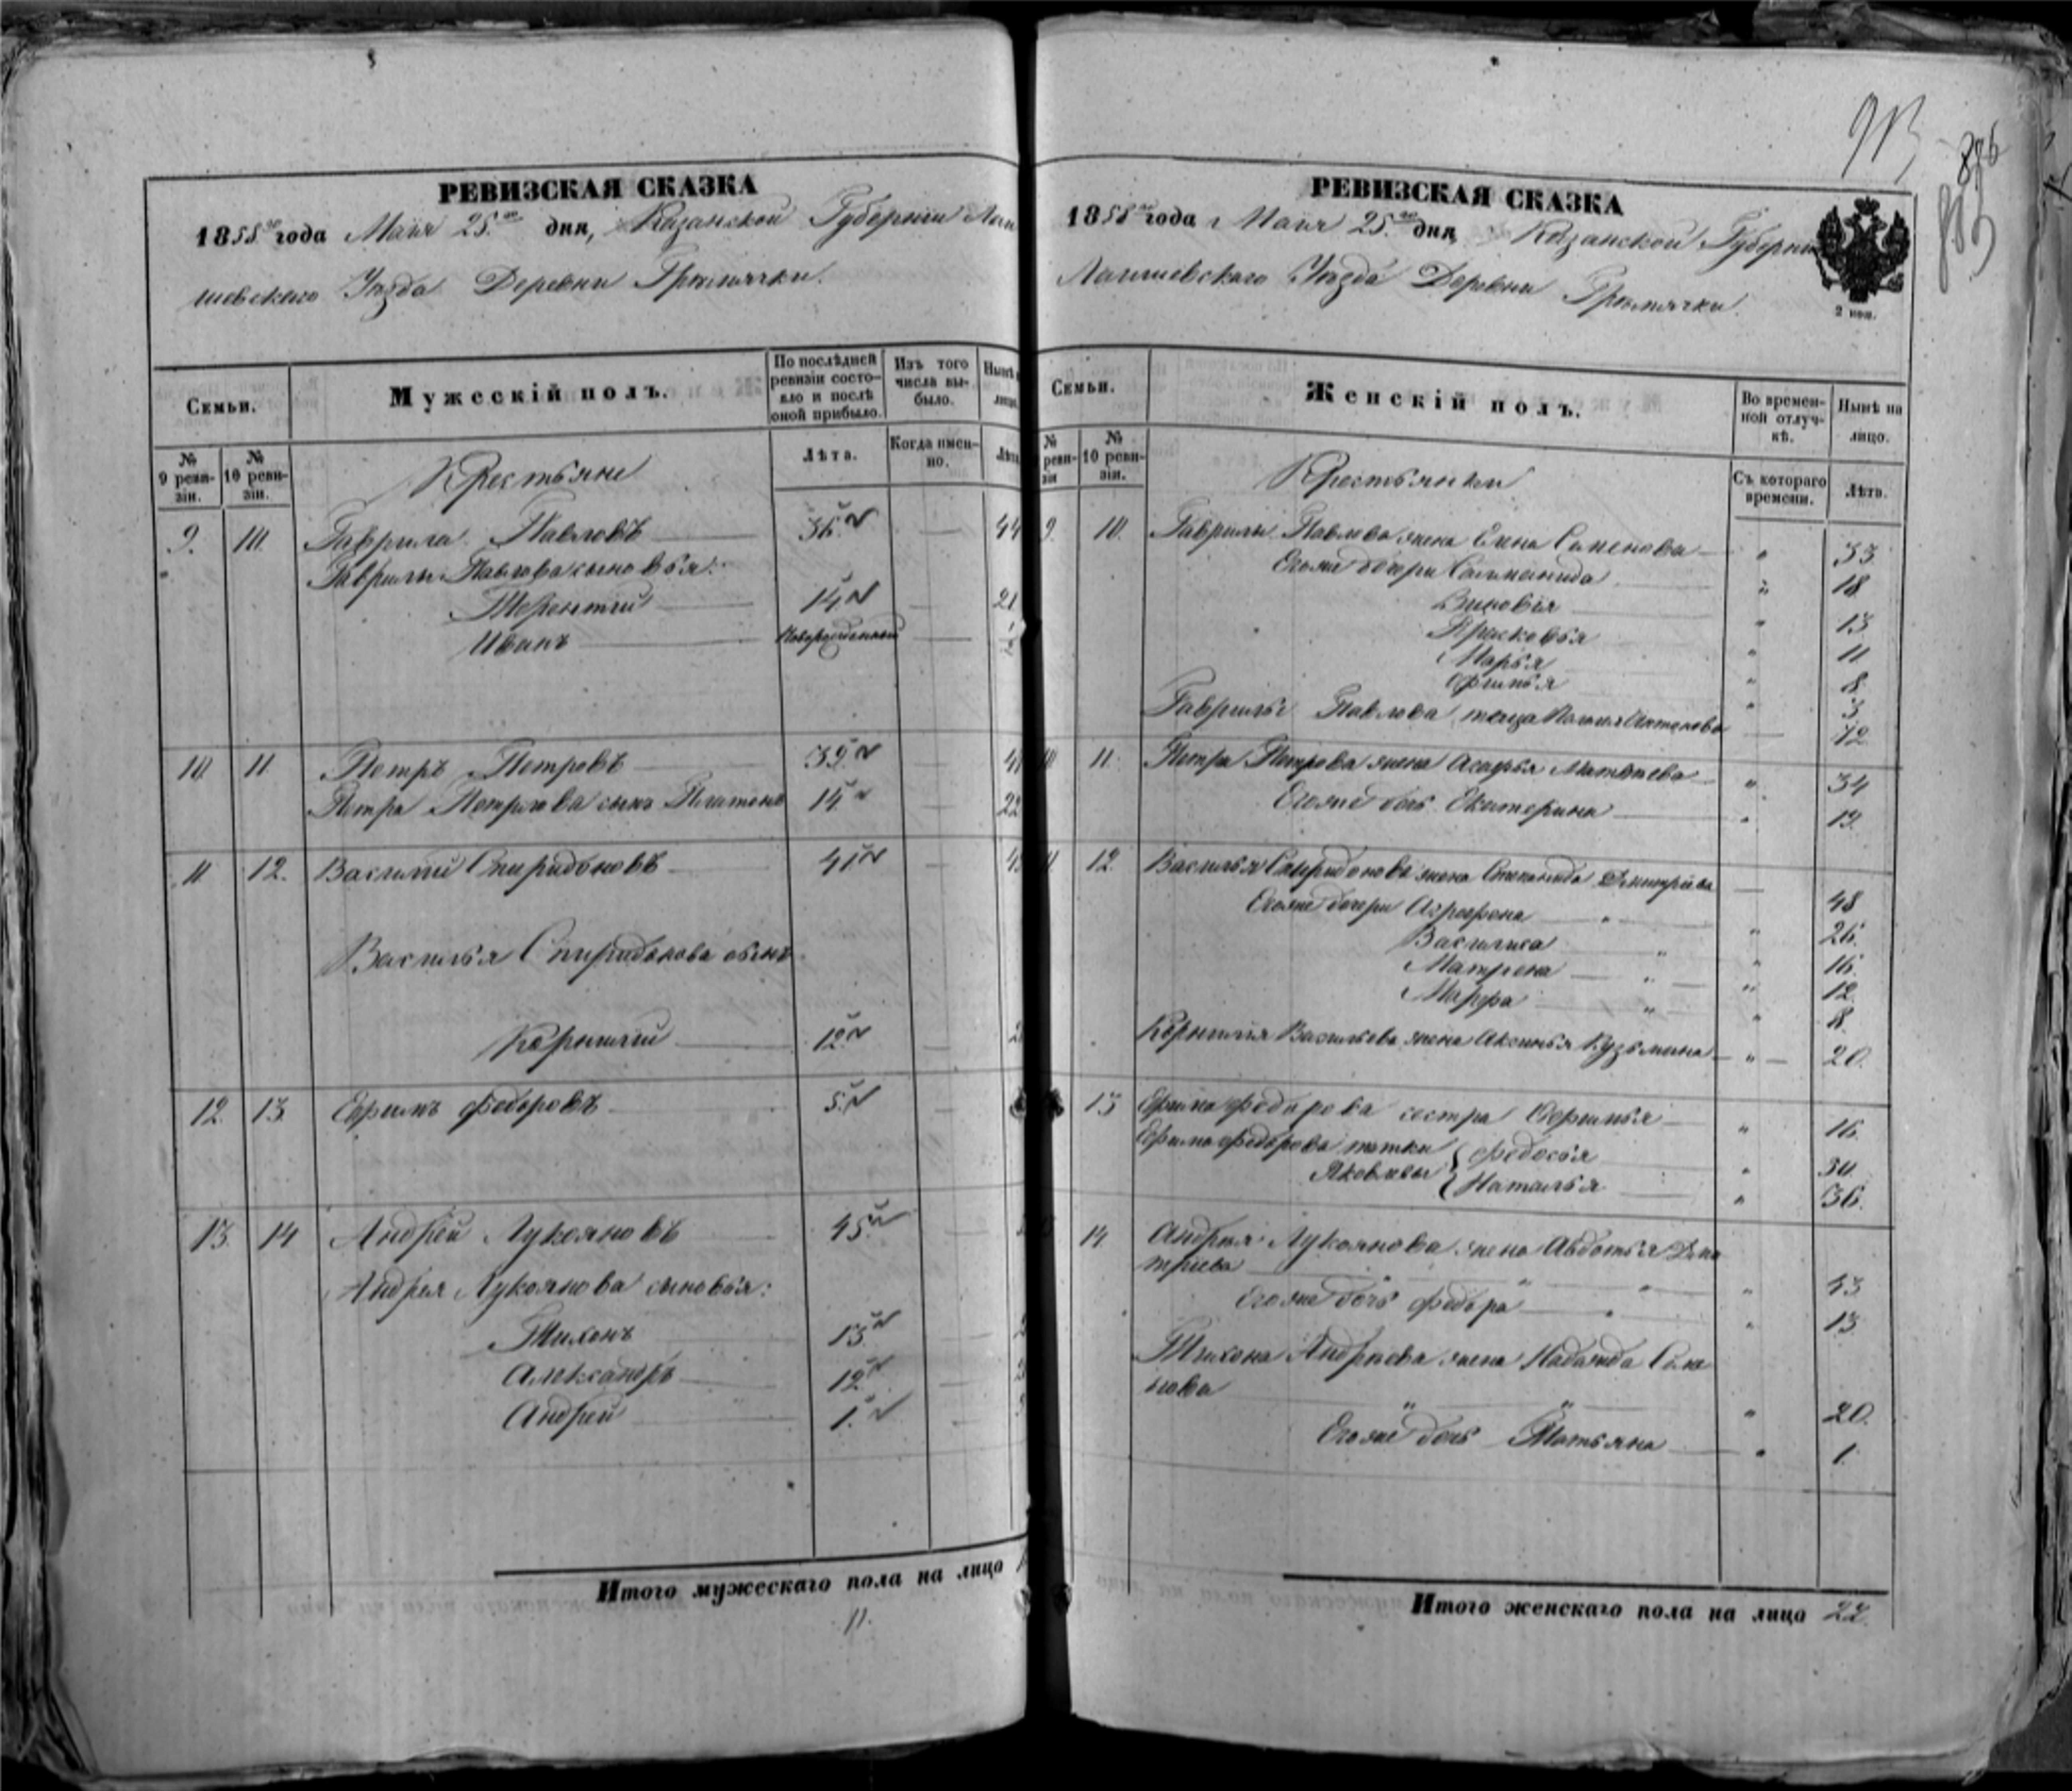 913
886
883
РЕВИЗСКАЯ СКАЗКА
1858го года Маія 25го дня, Казанской Губерніи Лаи
шевскаго Уѣзда Деревни Гремячки.
Семьи.
Мужескій полъ.
По послѣдней ревизіи состояло и послѣ оной прибыло.
Изъ того числа выбыло.
Нынѣ
лицо.
№ 9 ревизіи.
№ 10 ревизіи.
Крестьяне
Лѣта.
Когда именно.
Лѣта
9. 10. Гаврила Павловъ 36 44
Гаврилы Павлова сыновья:
Терентій 14 21
Иванъ Новорожденный 1/2
10 11. Петръ Петровъ 39
Петра Петрова сынъ Платонъ 14 22
11. 12. Василій Спиридоновъ 41
Василья Спиридонова сынъ
Корнилій 12
12. 13. Ефимъ Федоровъ 5
13. 14 Андрей Лукояновъ 45
Андрея Лукоянова сыновья:
Тихонъ 13
Александръ 12
Андрей 1
Итого мужескаго пола на лицо
11.
РЕВИЗСКАЯ СКАЗКА
1858го года Маія 25го дня, Казанской Губерніи
Лаишевскаго Уѣзда Деревни Гремячки.
2 коп.
Семьи.
Женскій полъ.
Во временной отлучкѣ.
Нынѣ на лицо.
№ ревизіи
№ 10 ревизіи.
Крестьянки
Съ котораго времени.
Лѣта.
9. 10. Гаврилы Павлова жена Елена Семенова " 33.
Егоже дочери Саломанида " 18
Виновья " 13
Прасковья " 11
Марья " 8
Афимья " 3
Гаврилы Павлова теща Антонова 72
10 11. Петра Петрова жена Агафья Матвѣева " 34
Егоже дочь Екатерина " 19.
11 12. Василья Спиридонова жена Степанида Дмитріева 48
Егоже дочери Агрофена " 26.
Василиса " 16.
Матрена " 12
Марфа " 8
Корнилія Васильева жена Аксинья Кузьмина " 20.
13 Ефима Федорова сестра Ефимья " 16.
Ефима Федорова тетки Федосья " 30
Яковлевы Наталья " 36.
14. Андрея Лукоянова жена Авдотья Дми
тріева " 43
Егоже дочь Федора " 13
Тихона Андреева жена Надежда Семе
нова " 20.
Егоже дочь Татьяна " 1.
Итого женскаго пола на лицо 22.